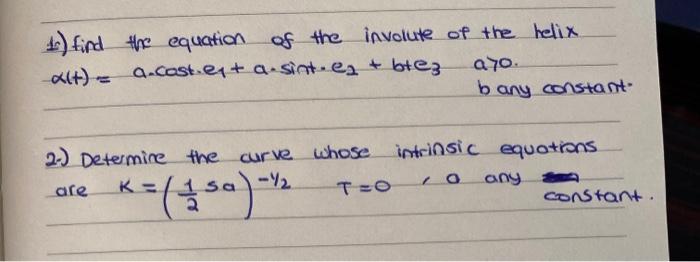 1.) find the equation of the involute of the helix
α(t) = a.cost.e₁ + a.sint.e₂ + bte₃ a>0.
b any constant.
2.) Determine the curve whose intrinsic equations
are K = (1/2 sa)^-1/2 T=0 , a any
constant.